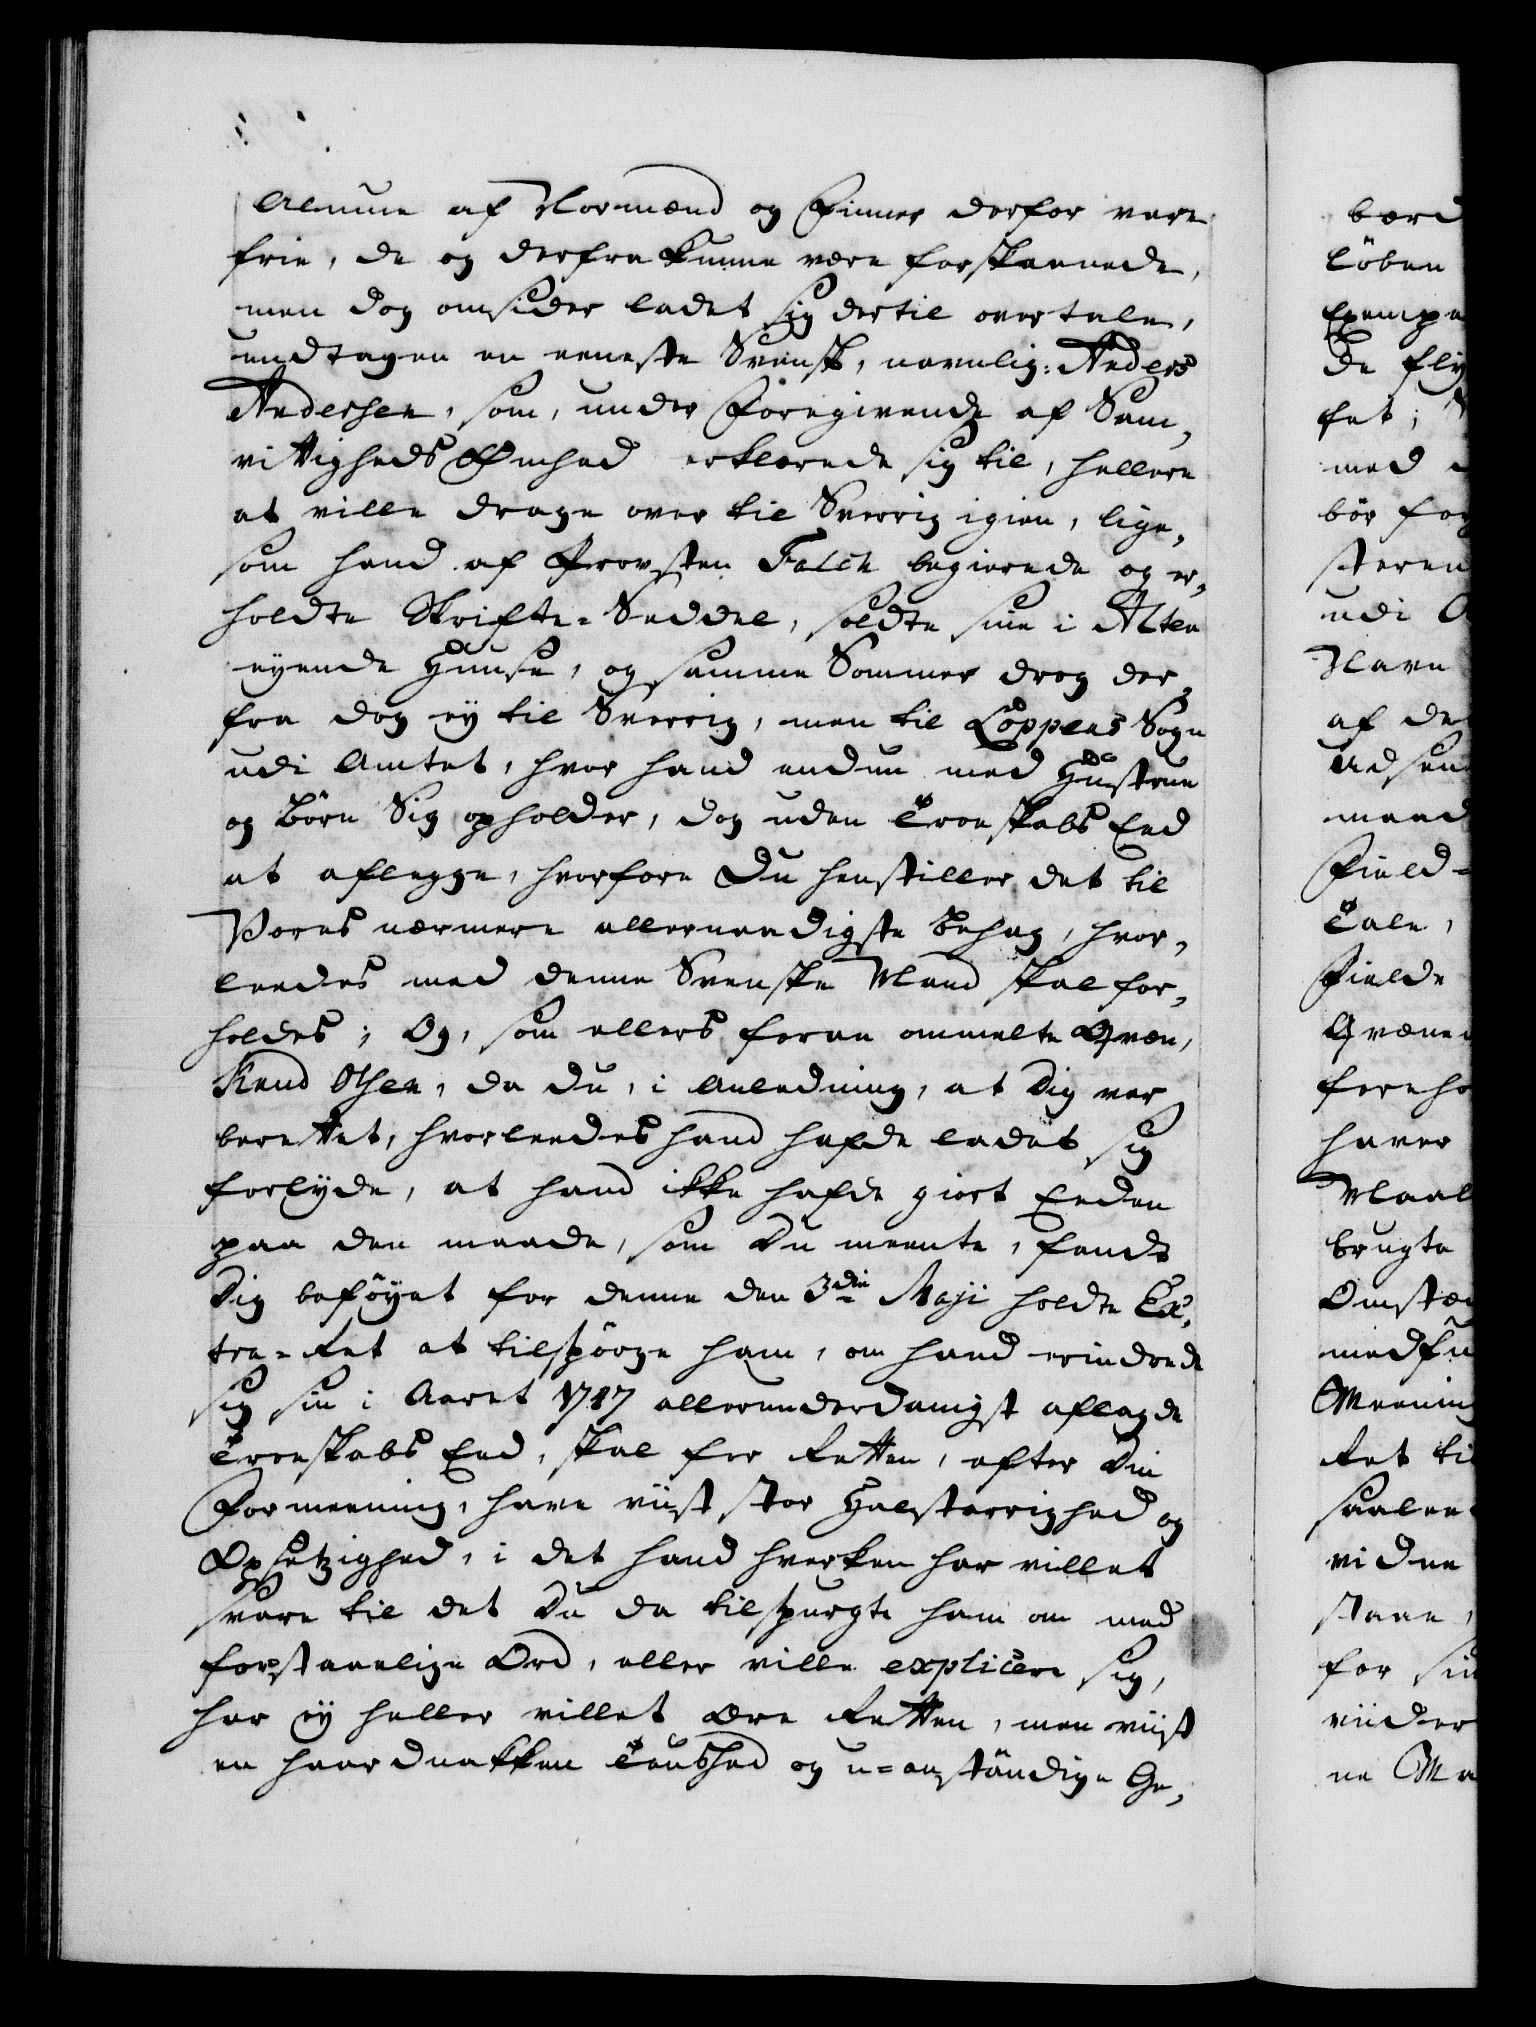 Almue af Normænd og Finner derfor vare
frie, de og derfra kunne være forskaanede,
men dog omsider ladet sig dertil overtale,
undtagen en eeneste Svensk, navnlig: Anders
Andersen, som, under Foregivende af Sam,
vittigheds Ømhed erklærede sig til, hellere
at ville drage over til Sverrig igien, lige,
som hand af Provsten Falch begierede og er,
holdte Skrifte-Seddel, solgte sine i Alten
eyende Huuse, og samme Sommer drog der
fra dog ey til Sverrig, men til Loppens Sogn
udi Amtet, hvor hand endnu med Hustrue
og Børn Sig opholder, dog uden Troeskabs Eed
at aflegge, hvorfore Du henstiller det til
Vores nærmere allernaadigste Behag, hvor,
leedes med denne Svenske Mand skal for,
holdes; Og, som ellers foran ommelte Qvæn,
Knud Olsen, da du, i Anledning, at Dig var
berettet, hvorleedes hand hafde ladet sig
forlyde, at hand ikke hafde giort Eeden
paa den maade, som Du meente, fandt
Dig beføyet for denne den 3die Maji holdte Ex,
tra-Ret at tilspørge ham, om hand erindrede
sig sin i Aaret 1747 allerunderdanigst aflagde
Troeskabs Eed, skal for Retten, efter Din
Formeening, have viist stor Halstarrighed og
Opsetzighed, i det hand hverken har villet
svare til det Du da tilspurgte ham om med
forstaaelige Ord, eller ville explicere sig,
har ey heller villet ære Retten, men viist
en haardnakken Taushed og u-anständige Ge,
bærd
løben
Exempe
de fly
tet;
med
bør for
steren
udi
Navn
af de
Udsen
maad
Field-
Tale,
Fielde
Qvæne
foreho
haver
Maal
brugte
Omstæn
medfü
Meening
Ret ti
saalee
vidne
staae,
for sin
viider
ne Ma